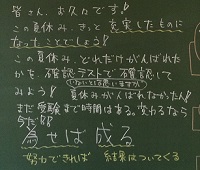 皆さん、お久々です!
この夏休み、きっと充実したものに
なったことでしょう!
この夏休み、どれだけがんばれた
かを、確認テストで確認して
(いないとは思いますが)
みよう! 夏休みがんばれなかった人!
まだ受験まで時間はある。変わるなら
今だ!!
為せば成る
努力できれば 結果はついてくる